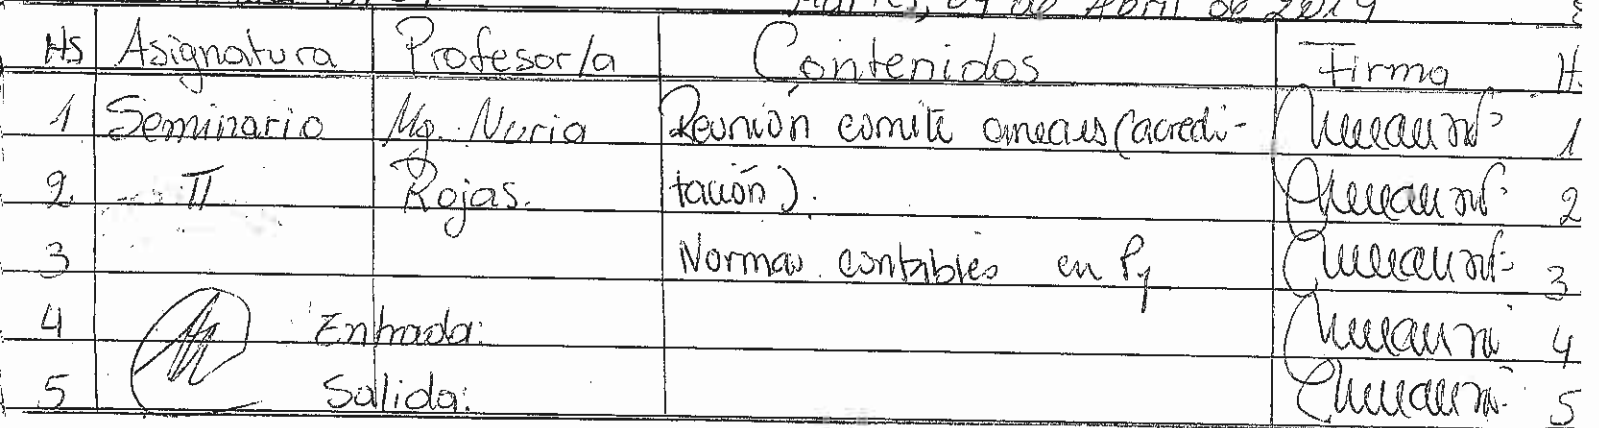 Martes, 09 de Abril de 2019
Hs Asignatura Profesor/a Contenidos Firma Hs
1 Seminario Mg. Nuria Reunión comité aneaes (acredi- 1
2 II Rojas. tación). 2
3 Normas contables en Py 3
4 Entrada: 4
5 Salida: 5